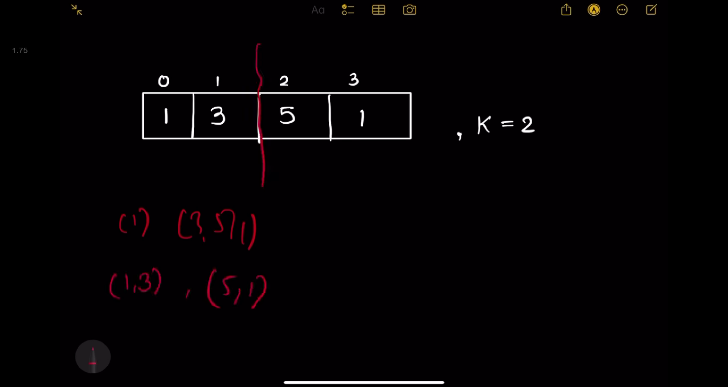 Aa
1.75
0 1 2 3
1 3 5 1 , K = 2
(1) (3,5,1)
(1,3) , (5,1)